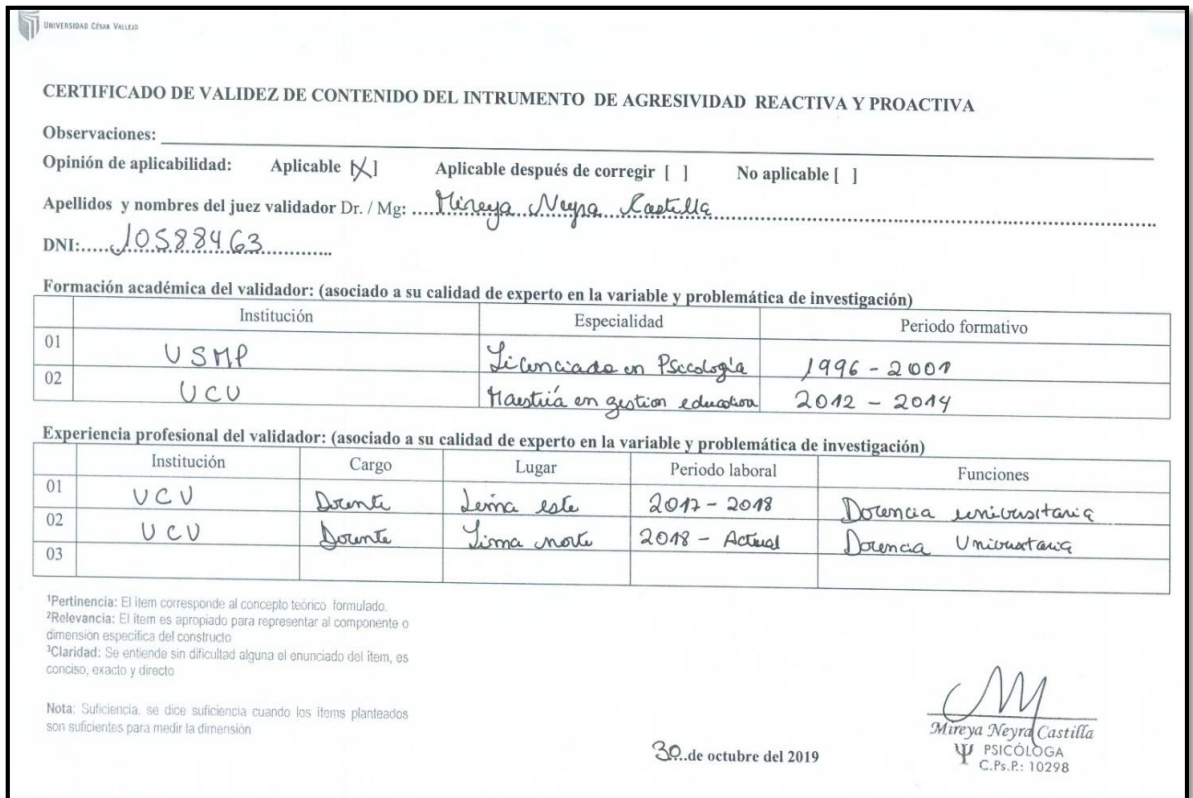 UNIVERSIDAD CÉSAR VALLEJO
CERTIFICADO DE VALIDEZ DE CONTENIDO DEL INTRUMENTO DE AGRESIVIDAD REACTIVA Y PROACTIVA
Observaciones:
Opinión de aplicabilidad: Aplicable [X] Aplicable después de corregir [ ] No aplicable [ ]
Apellidos y nombres del juez validador Dr. / Mg: Mireya Neyra Castilla
DNI: 10588463
Formación académica del validador: (asociado a su calidad de experto en la variable y problemática de investigación)
Institución Especialidad Periodo formativo
01 USMP Licenciado en Psicología 1996 - 2001
02 UCV Maestría en gestion educativa 2012 - 2014
Experiencia profesional del validador: (asociado a su calidad de experto en la variable y problemática de investigación)
Institución Cargo Lugar Periodo laboral Funciones
01 UCV Docente Lima este 2017 - 2018 Docencia universitaria
02 UCV Docente Lima norte 2018 - Actual Docencia Universitaria
03
¹Pertinencia: El ítem corresponde al concepto teórico formulado.
²Relevancia: El ítem es apropiado para representar al componente o
dimensión específica del constructo
³Claridad: Se entiende sin dificultad alguna el enunciado del ítem, es
conciso, exacto y directo
Nota: Suficiencia, se dice suficiencia cuando los ítems planteados
son suficientes para medir la dimensión
30..de octubre del 2019
Mireya Neyra Castilla
Ψ PSICÓLOGA
C.Ps.P.: 10298